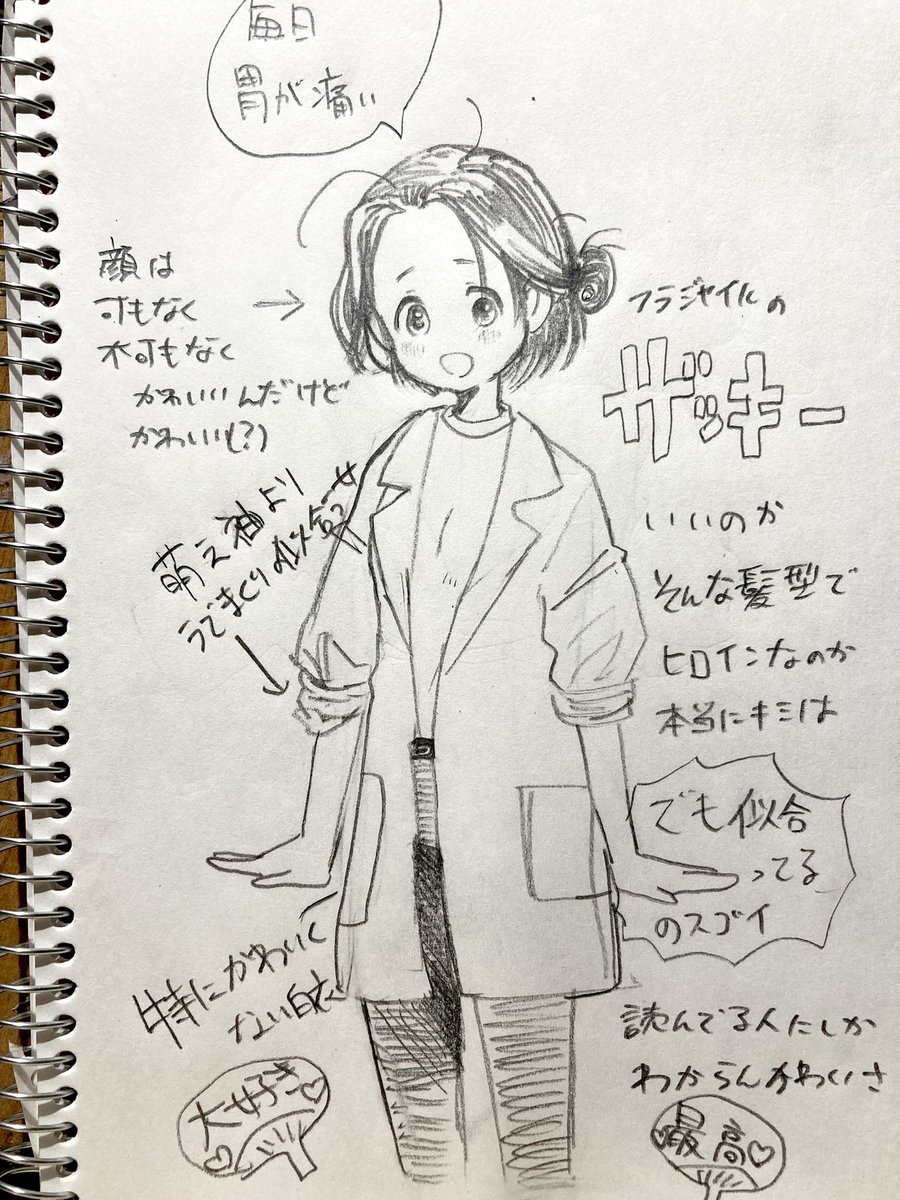 毎日
胃が痛い
顔は
可もなく
不可もなく
かわいいんだけど
かわいい(?)
フラジャイルの
ザッキー
萌え袖より
うでまくり似合う女
いいのか
そんな髪型で
ヒロインなのか
本当にキミは
でも似合
ってる
のスゴイ
特にかわいく
ない白衣
読んでる人にしか
わからんかわいさ
大好き♡
♡最高♡